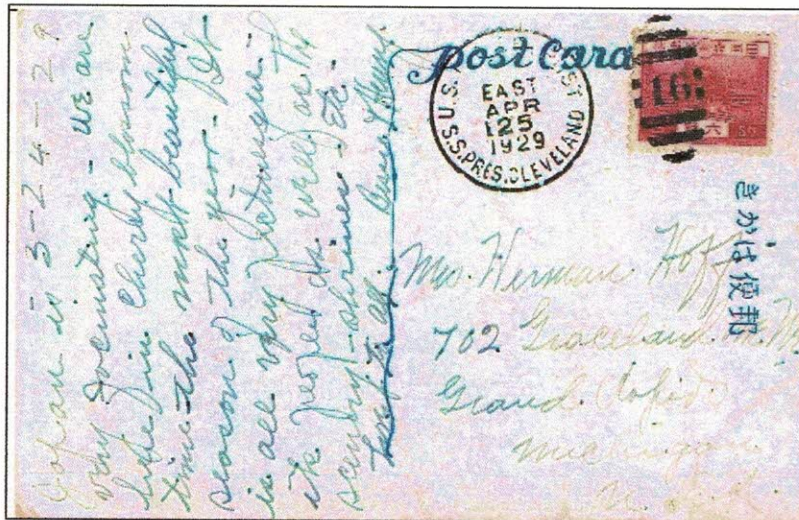 Japan is 3-24-29
very fascinating - we are
here in cherry blossom
time the most beautiful
season of the year - It
is all very picturesque -
the people as well as the
scenery - shrines - etc -
Love to all.
Post Card
U.S.
EAST
APR
25
1929
U.S.S. PRES. CLEVELAND
16
六
きかは便郵
Mrs. Herman Hoff
702 Graceland
Grand Rapids
Michigan